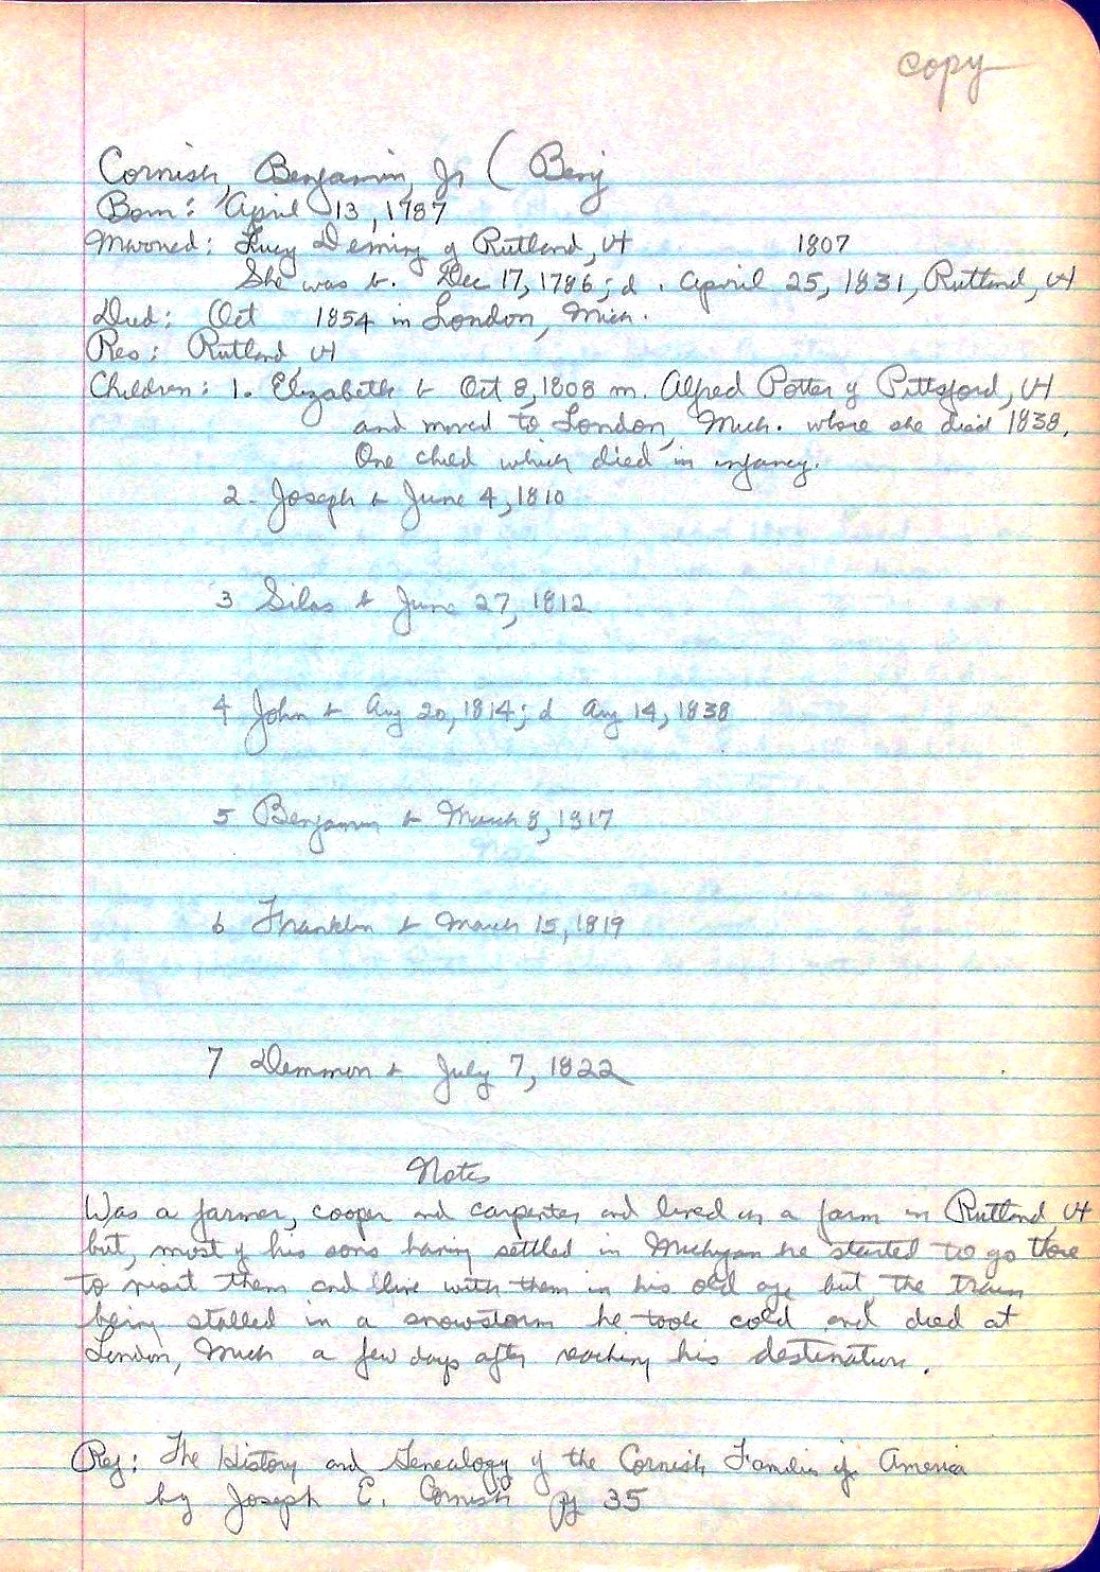 copy
Cornish, Benjamin, Jr ( Benj
Born: April 13, 1787
Married: Lucy Deming of Rutland, Vt 1807
She was b. Dec 17, 1786; d. April 25, 1831, Rutland, Vt
Died: Oct 1854 in London, Mich.
Res: Rutland Vt
Children: 1. Elizabeth b Oct 8, 1808 m. Alfred Potter of Pittsford, Vt
and moved to London, Mich. where she died 1838.
One child which died in infancy.
2. Joseph b June 4, 1810
3 Silas b June 27, 1812
4 John b Aug 20, 1814; d Aug 14, 1838
5 Benjamin b March 8, 1817
6 Franklin b March 15, 1819
7 Demmon b July 7, 1822
Notes
Was a farmer, cooper and carpenter and lived on a farm in Rutland, Vt
but, most of his sons having settled in Michigan he started to go there
to visit them and live with them in his old age but the train
being stalled in a snowstorm he took cold and died at
London, Mich a few days after reaching his destination.
Ref: The History and Genealogy of the Cornish Families in America
by Joseph E. Cornish pg 35